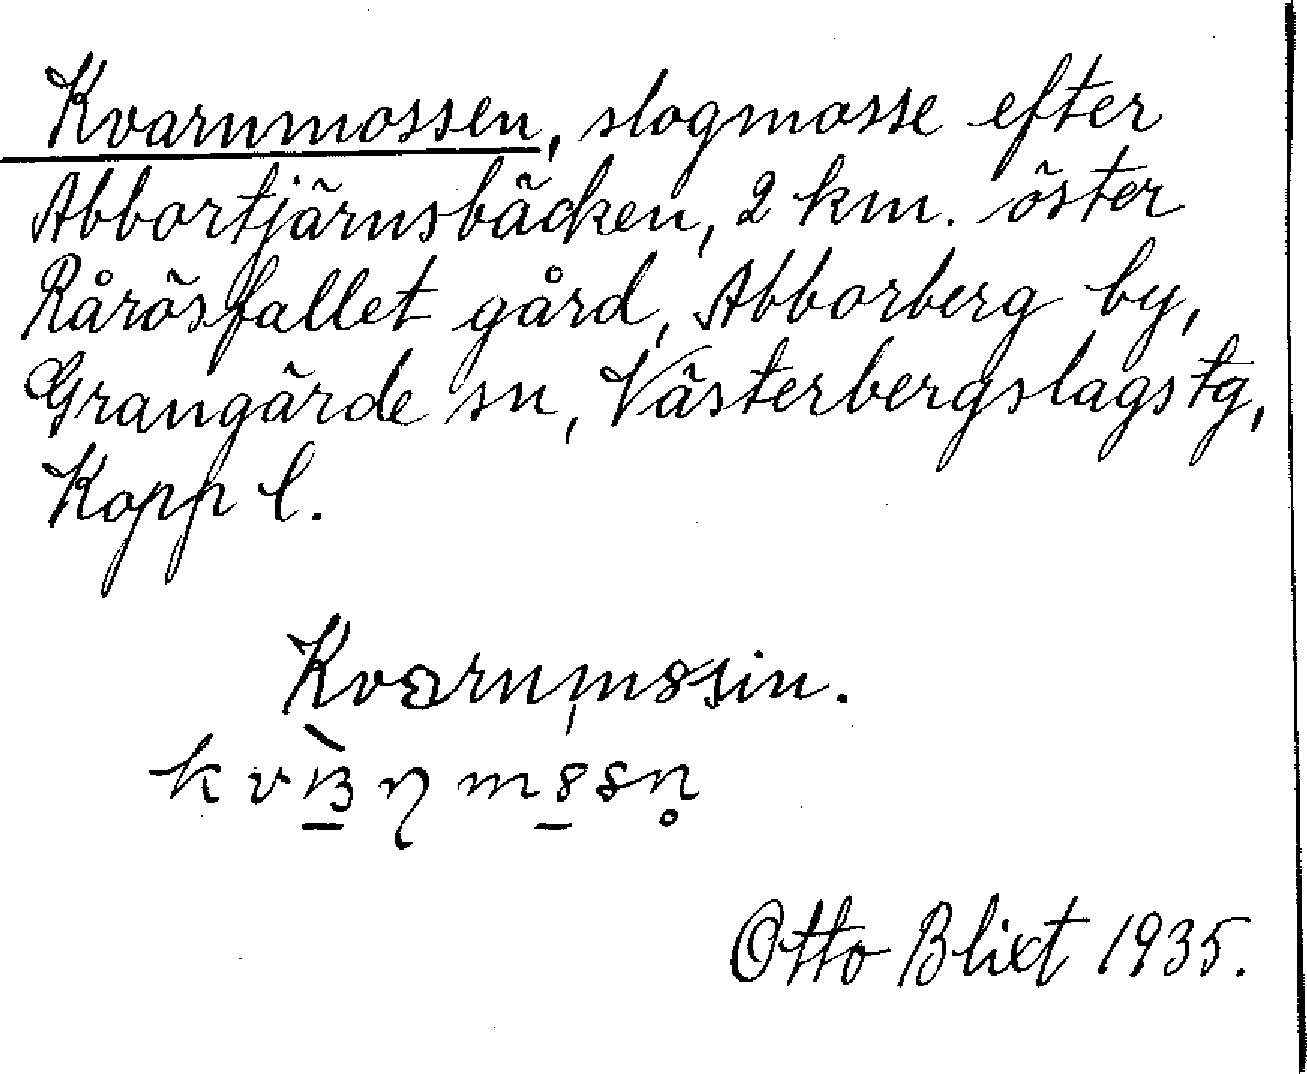 Kvarnmossen, slogmosse efter
Abbortjärnsbäcken, 2 km. öster
Rårösfallet gård, Abborberg by,
Grangärde sn, Västerbergslags tg,
Kopp l.
Otto Blixt 1935.